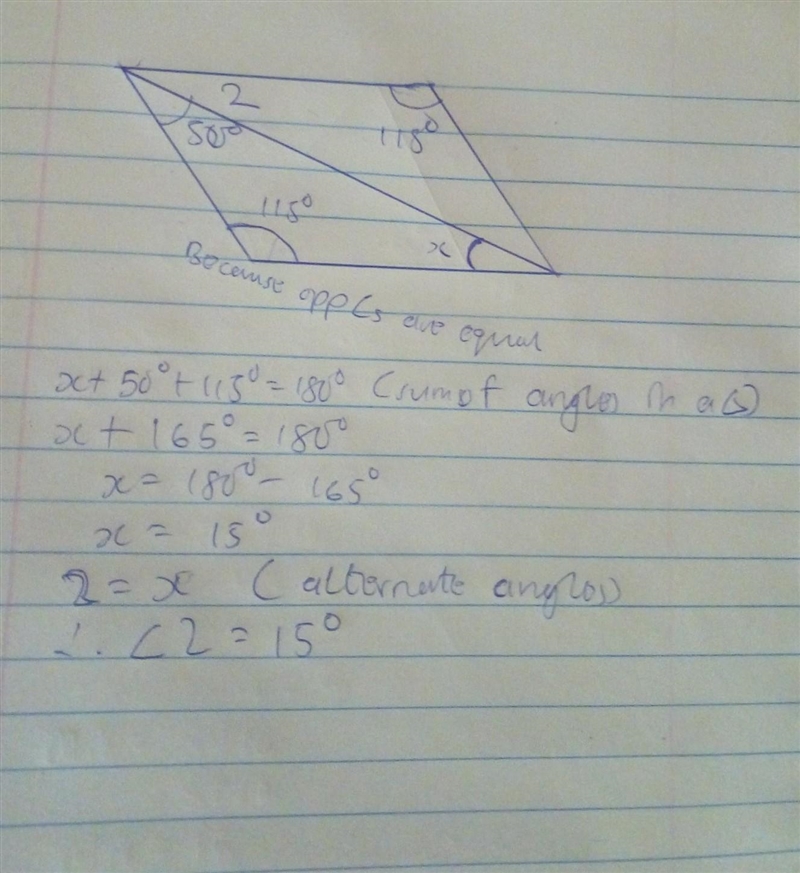 2
50°
115°
115°
x
Because opp ∠s are equal
x + 50° + 115° = 180° (sum of angles in a △)
x + 165° = 180°
x = 180° - 165°
x = 15°
2 = x (alternate angles)
∴ ∠2 = 15°